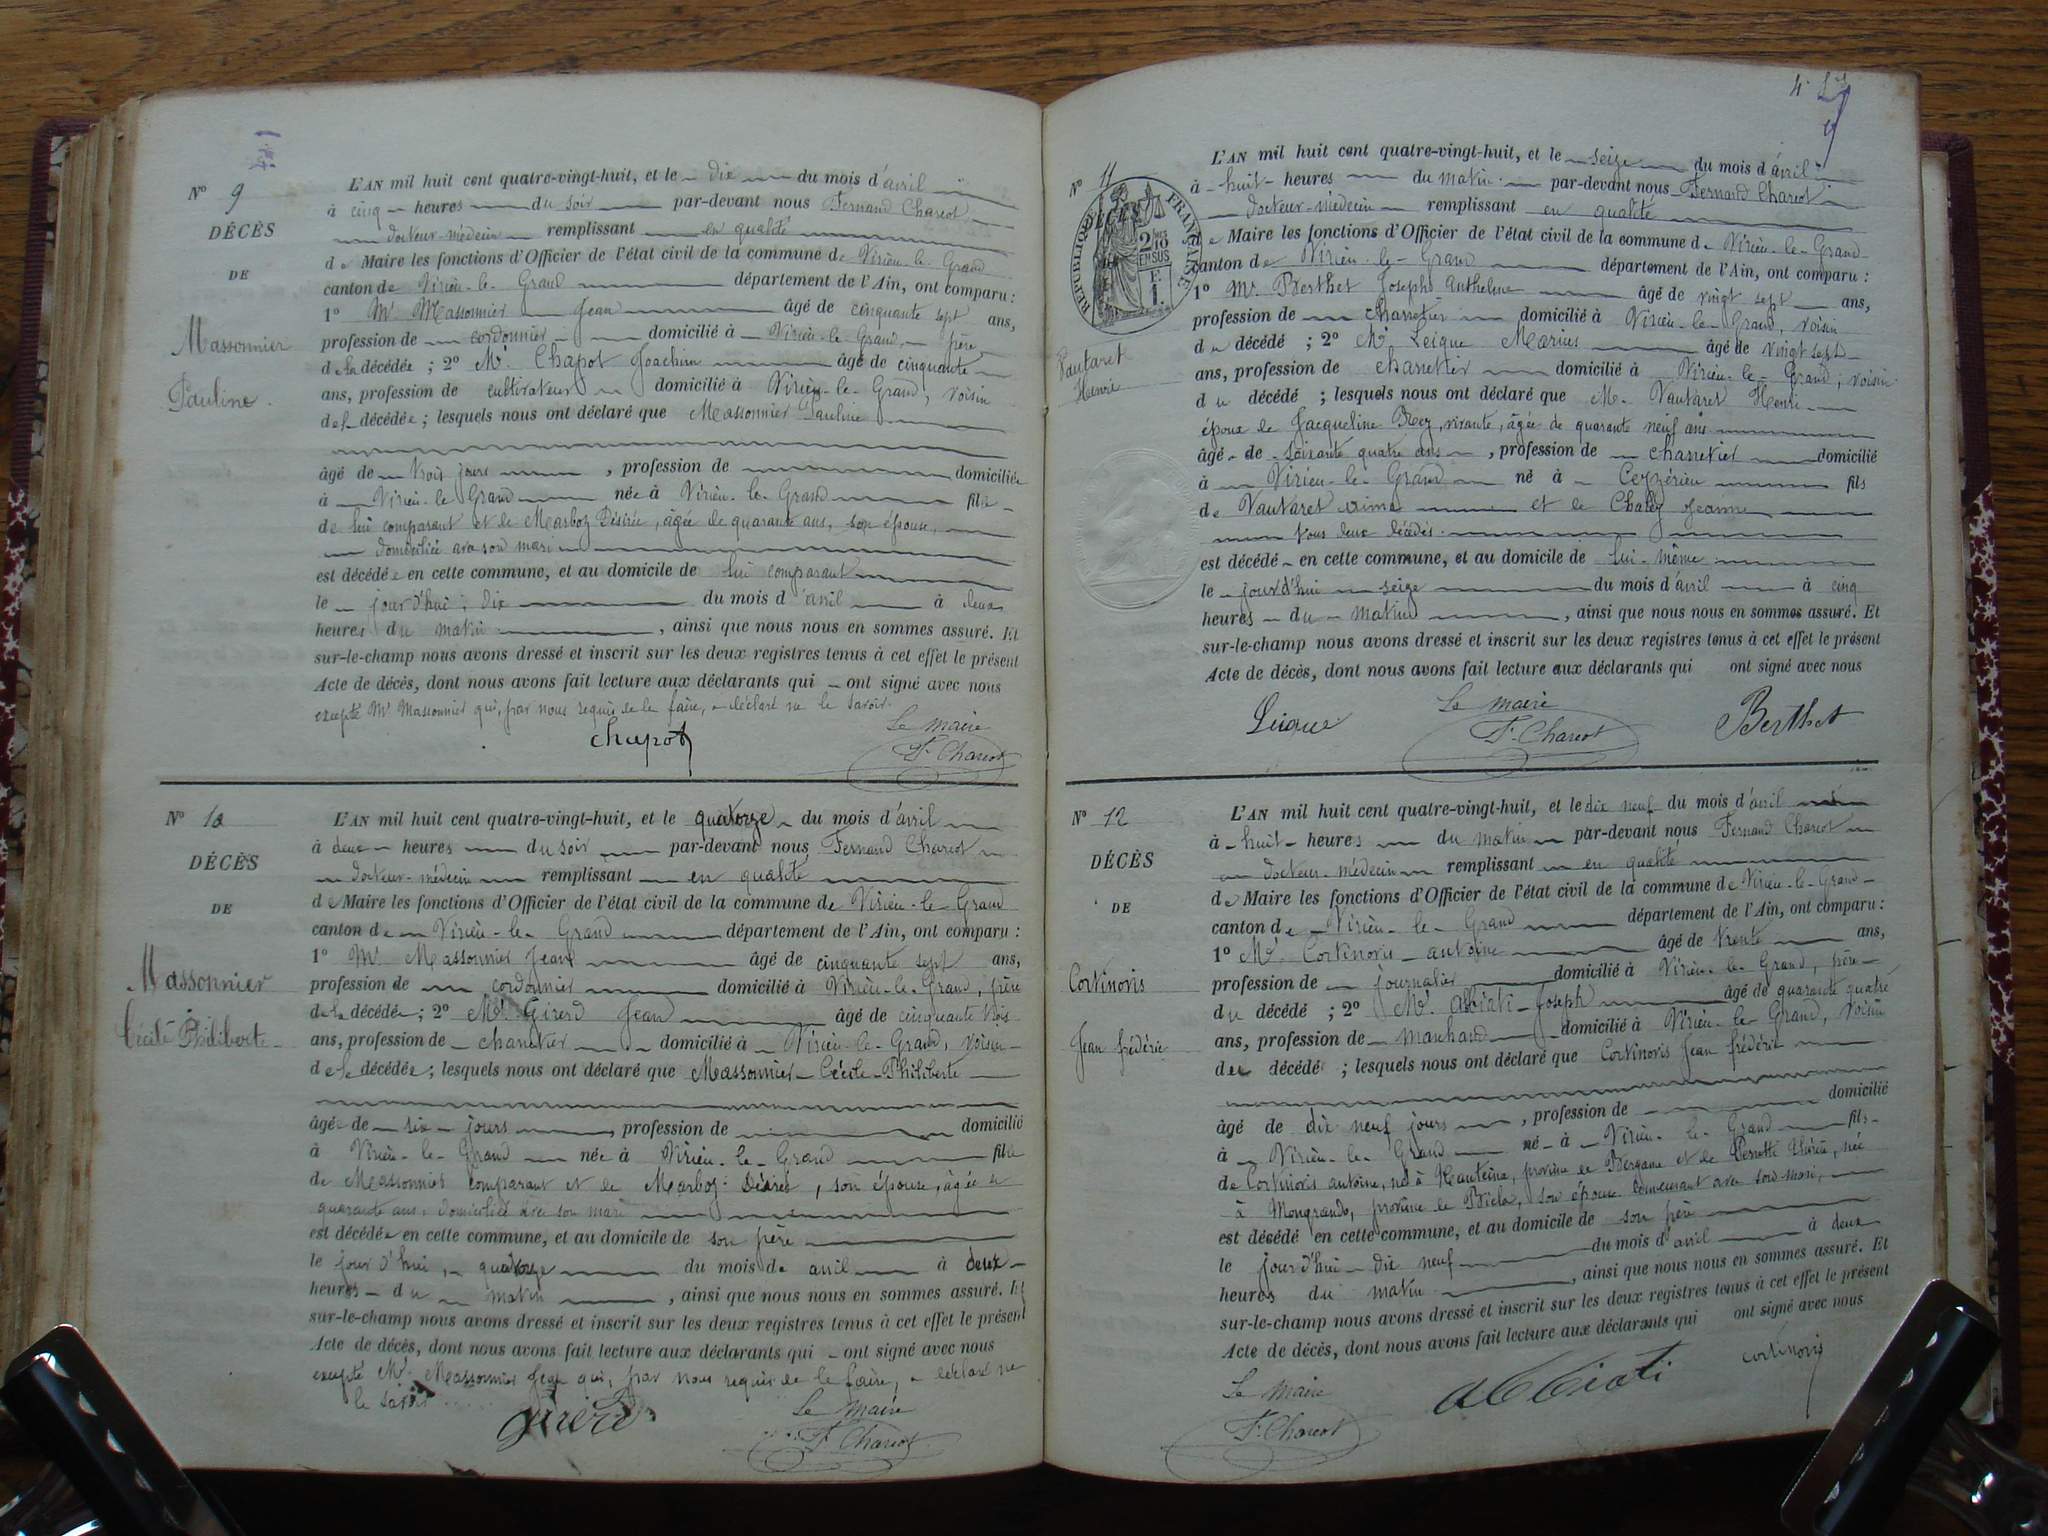 No 9
DÉCÈS
DE
Massonnier
Pauline.
L'AN mil huit cent quatre-vingt-huit, et le dix du mois d'avril
à cinq heures du soir par-devant nous Fernand Charcot
docteur-médecin remplissant en qualité
de Maire les fonctions d'Officier de l'état civil de la commune de Virieu-le-Grand
canton de Virieu-le-Grand département de l'Ain, ont comparu :
1o Mr Massonnier Jean âgé de cinquante sept ans,
profession de cordonnier domicilié à Virieu-le-Grand, père
de la décédée ; 2o Mr Chapot Joachim âgé de cinquante
ans, profession de cultivateur domicilié à Virieu-le-Grand, voisin
de la décédée ; lesquels nous ont déclaré que Massonnier Pauline
âgé de trois jours , profession de domiciliée
à Virieu-le-Grand née à Virieu-le-Grand fille
de lui comparant et de Marboz Désirée, âgée de quarante ans, son épouse,
domiciliée avec son mari
est décédée en cette commune, et au domicile de lui comparant
le jourd'hui, dix du mois d'avril à deux
heures du matin , ainsi que nous nous en sommes assuré. Et
sur-le-champ nous avons dressé et inscrit sur les deux registres tenus à cet effet le présent
Acte de décès, dont nous avons fait lecture aux déclarants qui ont signé avec nous
excepté Mr Massonnier qui, par nous requis de le faire, a déclaré ne le savoir.
chapot
Le Maire
F. Charcot
No 10
DÉCÈS
DE
Massonnier
Cécile Philiberte
L'AN mil huit cent quatre-vingt-huit, et le quatorze du mois d'avril
à deux heures du soir par-devant nous Fernand Charcot
docteur-médecin remplissant en qualité
de Maire les fonctions d'Officier de l'état civil de la commune de Virieu-le-Grand
canton de Virieu-le-Grand département de l'Ain, ont comparu :
1o Mr Massonnier Jean âgé de cinquante sept ans,
profession de cordonnier domicilié à Virieu-le-Grand, père
de la décédée ; 2o Mr Girerd Jean âgé de cinquante trois
ans, profession de charretier domicilié à Virieu-le-Grand, voisin
de la décédée ; lesquels nous ont déclaré que Massonnier Cécile-Philiberte
âgée de six jours , profession de domicilié
à Virieu-le-Grand née à Virieu-le-Grand fille
de Massonnier comparant et de Marboz Désirée, son épouse, âgée de
quarante ans, domiciliée avec son mari
est décédée en cette commune, et au domicile de son père
le jour d'hui, quatorze du mois de avril à deux
heures du matin , ainsi que nous nous en sommes assuré. Et
sur-le-champ nous avons dressé et inscrit sur les deux registres tenus à cet effet le présent
Acte de décès, dont nous avons fait lecture aux déclarants qui ont signé avec nous
excepté Mr Massonnier Jean qui, par nous requis de le faire, a déclaré ne
le savoir
girerd
Le Maire
F. Charcot
4
No 11
DÉCÈS
RÉPUBLIQUE FRANÇAISE
2/10 EN SUS
F. 1.
Vautaret
Henri
L'AN mil huit cent quatre-vingt-huit, et le seize du mois d'avril
à huit heures du matin par-devant nous Fernand Charcot
docteur-médecin remplissant en qualité
de Maire les fonctions d'Officier de l'état civil de la commune de Virieu-le-Grand
canton de Virieu-le-Grand département de l'Ain, ont comparu :
1o Mr Berthet Joseph Anthelme âgé de vingt sept ans,
profession de charretier domicilié à Virieu-le-Grand, voisin
du décédé ; 2o Mr Leique Marius âgé de vingt sept
ans, profession de charretier domicilié à Virieu-le-Grand, voisin
du décédé ; lesquels nous ont déclaré que M. Vautaret Henri
époux de Jacqueline Rey, vivante, âgée de quarante neuf ans
âgé de soixante quatre ans , profession de charretier domicilié
à Virieu-le-Grand né à Ceyzérieu fils
de Vautaret aimé et de Chaley Jeanne
tous deux décédés
est décédé en cette commune, et au domicile de lui-même
le jourd'hui seize du mois d'avril à cinq
heures du matin , ainsi que nous nous en sommes assuré. Et
sur-le-champ nous avons dressé et inscrit sur les deux registres tenus à cet effet le présent
Acte de décès, dont nous avons fait lecture aux déclarants qui ont signé avec nous
Leique
Le Maire
F. Charcot
Berthet
No 12
DÉCÈS
DE
Cortinoris
Jean frédéric
L'AN mil huit cent quatre-vingt-huit, et le dix neuf du mois d'avril
à huit heures du matin par-devant nous Fernand Charcot
docteur-médecin remplissant en qualité
de Maire les fonctions d'Officier de l'état civil de la commune de Virieu-le-Grand
canton de Virieu-le-Grand département de l'Ain, ont comparu :
1o Mr Cortinoris antoine âgé de trente ans,
profession de journalier domicilié à Virieu-le-Grand, père
du décédé ; 2o Mr Abbiati Joseph âgé de quarante quatre
ans, profession de marchand domicilié à Virieu-le-Grand, voisin
du décédé ; lesquels nous ont déclaré que Cortinoris Jean frédéric
âgé de dix neuf jours , profession de domicilié
à Virieu-le-Grand né à Virieu-le-Grand fils
de Cortinoris antoine, né à province de Bergame et de Thérèse, née
à Mongrando, province de Biela, son épouse demeurant avec son mari,
est décédé en cette commune, et au domicile de son père
le jourd'hui dix neuf du mois d'avril à deux
heures du matin , ainsi que nous nous en sommes assuré. Et
sur-le-champ nous avons dressé et inscrit sur les deux registres tenus à cet effet le présent
Acte de décès, dont nous avons fait lecture aux déclarants qui ont signé avec nous
Le Maire
F. Charcot
abbiati
cortinoris